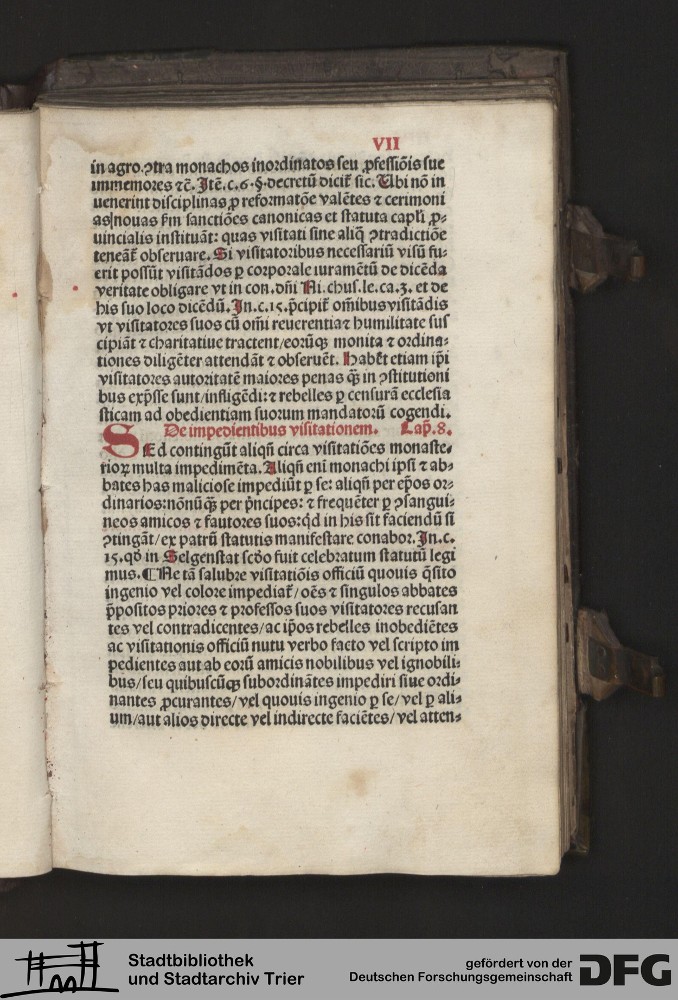 VII
in agro.ꝯtra monachos inordinatos seu ꝓfessiōis sue
immemores ⁊c̄. Itē.c.6.§.decretū dicit̄ sic. Ubi nō in
uenerint disciplinas ꝓ reformatōe valētes ⁊ cerimoni
as/nouas ẜm sanctiōes canonicas et statuta capl̄i ꝓ-
uincialis instituāt: quas visitati sine aliq̄ ꝯtradictiōe
teneāt̄ obseruare. Si visitatoribus necessariū visū fu-
erit possūt visitādos ꝑ corporale iuramētū de dicēda
veritate obligare vt in con. dn̄i Ni.chus.le.ca.3. et de
his suo loco dicēdū. In.c.15.p̄cipit̄ om̄ibus visitādis
vt visitatores suos cū om̄i reuerentia ⁊ humilitate sus
cipiāt ⁊ charitatiue tractent/eorūqꝫ monita ⁊ ordina-
tiones diligēter attendāt ⁊ obseruēt. Habēt etiam ip̄i
visitatores autoritatē maiores penas qꝫ̄ in ꝯstitutioni
bus exp̄sse sunt/infligēdi: ⁊ rebelles ꝑ censurā ecclesia
sticam ad obedientiam suorum mandatorū cogendi.
De impedientibus visitationem. Cap̄.8.
SEd contingūt aliqn̄ circa visitatiōes monaste-
rioꝝ multa impedimēta. Aliqn̄ eni monachi ipsi ⁊ ab-
bates has maliciose impediūt ꝑ se: aliqn̄ per ep̄os or-
dinarios: nōnūqꝫ̄ per p̄ncipes: ⁊ frequēter ꝑ ꝯsangui-
neos amicos ⁊ fautores suos: qd̄ in his sit faciendū si
ꝯtingāt/ex patrū statutis manifestare conabor. In.c.
15.qd̄ in Selgenstat scd̄o fuit celebratum statutū legi
mus. ¶Ne tā salubre visitatiōis officiū quouis q̄sito
ingenio vel colore impediat̄/oēs ⁊ singulos abbates
p̄positos priores ⁊ professos suos visitatores recusan
tes vel contradicentes/ac ip̄os rebelles inobediētes
ac visitationis officiū nutu verbo facto vel scripto im
pedientes aut ab eorū amicis nobilibus vel ignobili-
bus/seu quibuscūqꝫ subordinātes impediri siue ordi-
nantes ꝓcurantes/vel quouis ingenio ꝑ se/vel ꝑ ali-
um/aut alios directe vel indirecte faciētes/vel atten-
Stadtbibliothek
und Stadtarchiv Trier
gefördert von der
Deutschen Forschungsgemeinschaft
DFG